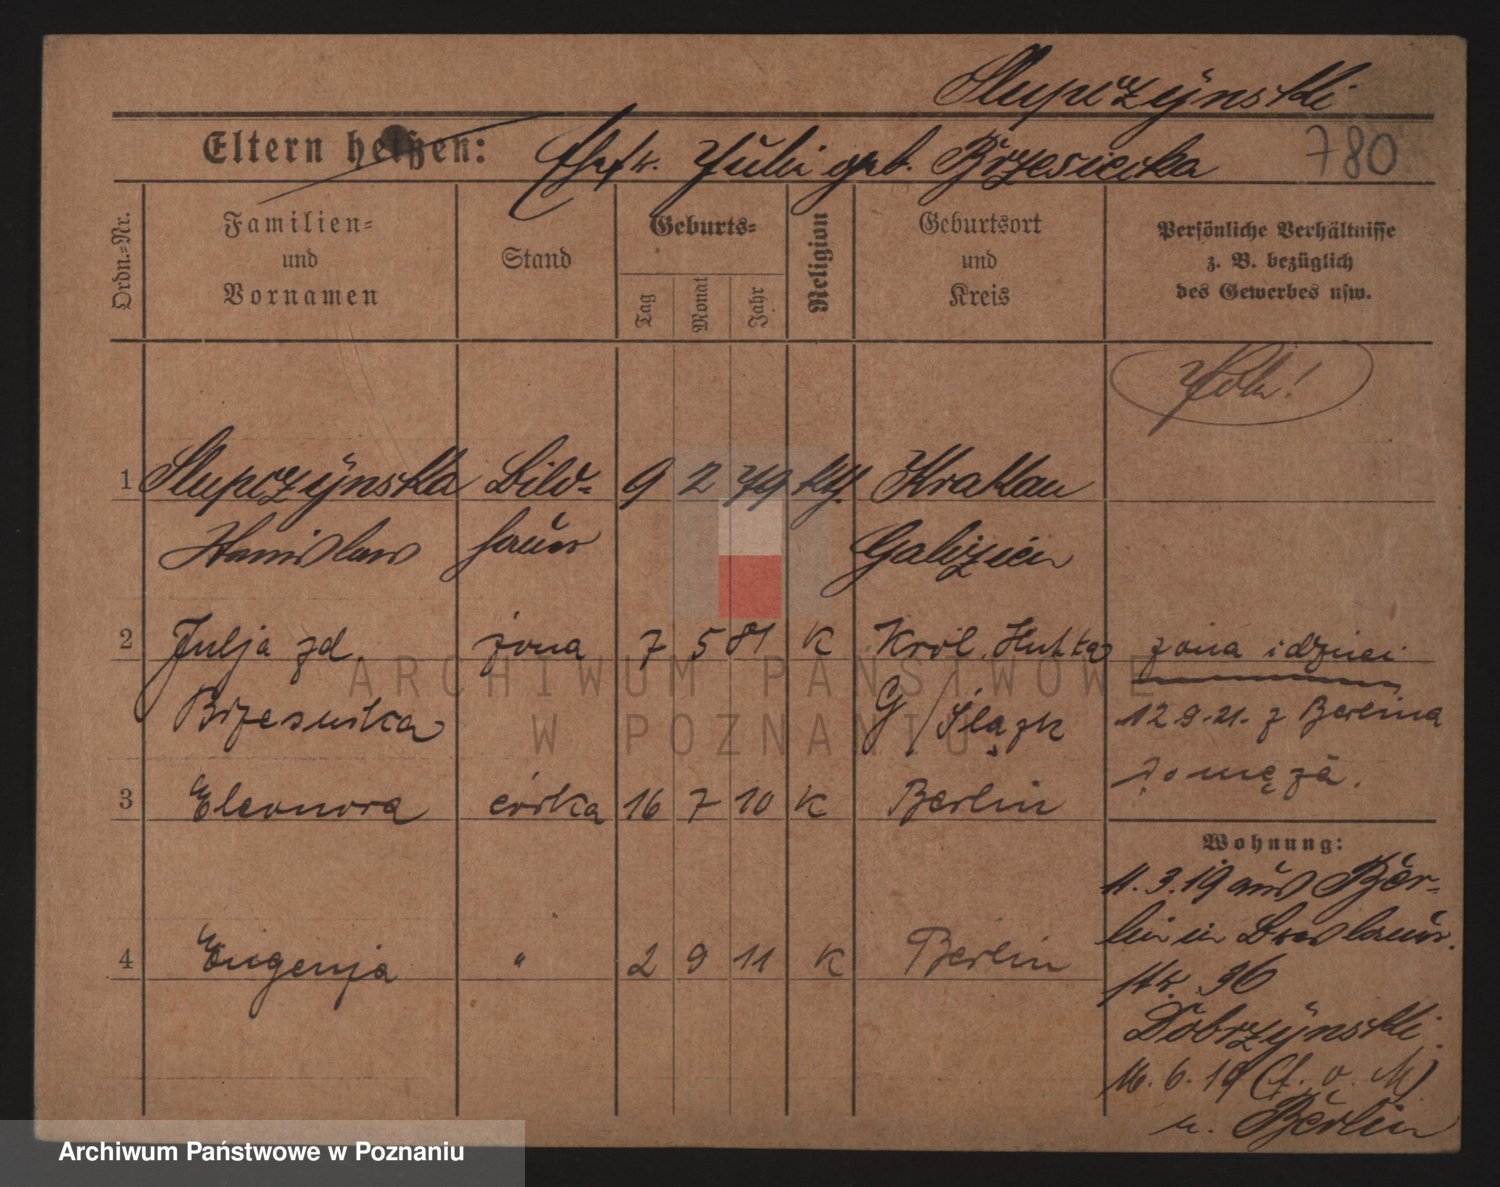 Slupczynski
Eltern heißen: Ehefr. Julie geb. Brzesiecka 780
Ordn.=Nr.
Familien= und Vornamen
Stand
Geburts=
Tag Monat Jahr
Religion
Geburtsort und Kreis
Persönliche Verhältnisse z. B. bezüglich des Gewerbes usw.
Pole!
1 Slupczynska Bild= 9 2 79 kth. Krakau
Stanislaw hauer Galizien
2 Julja zd. żona 7 5 81 K Król. Hutta żona i dzieci
Brzesucka G/Śląsk 12.9.21. z Berlina
do męża.
3 Eleonora córka 16 7 10 K Berlin
Wohnung:
11.3.19 aus Ber-
lin in Breslauer-
str. 36
4 Eugenja " 2 9 11 K Berlin
Dobrzynski.
16.6.19 (A. v. M)
n. Berlin
ARCHIWUM PAŃSTWOWE
W POZNANIU
Archiwum Państwowe w Poznaniu